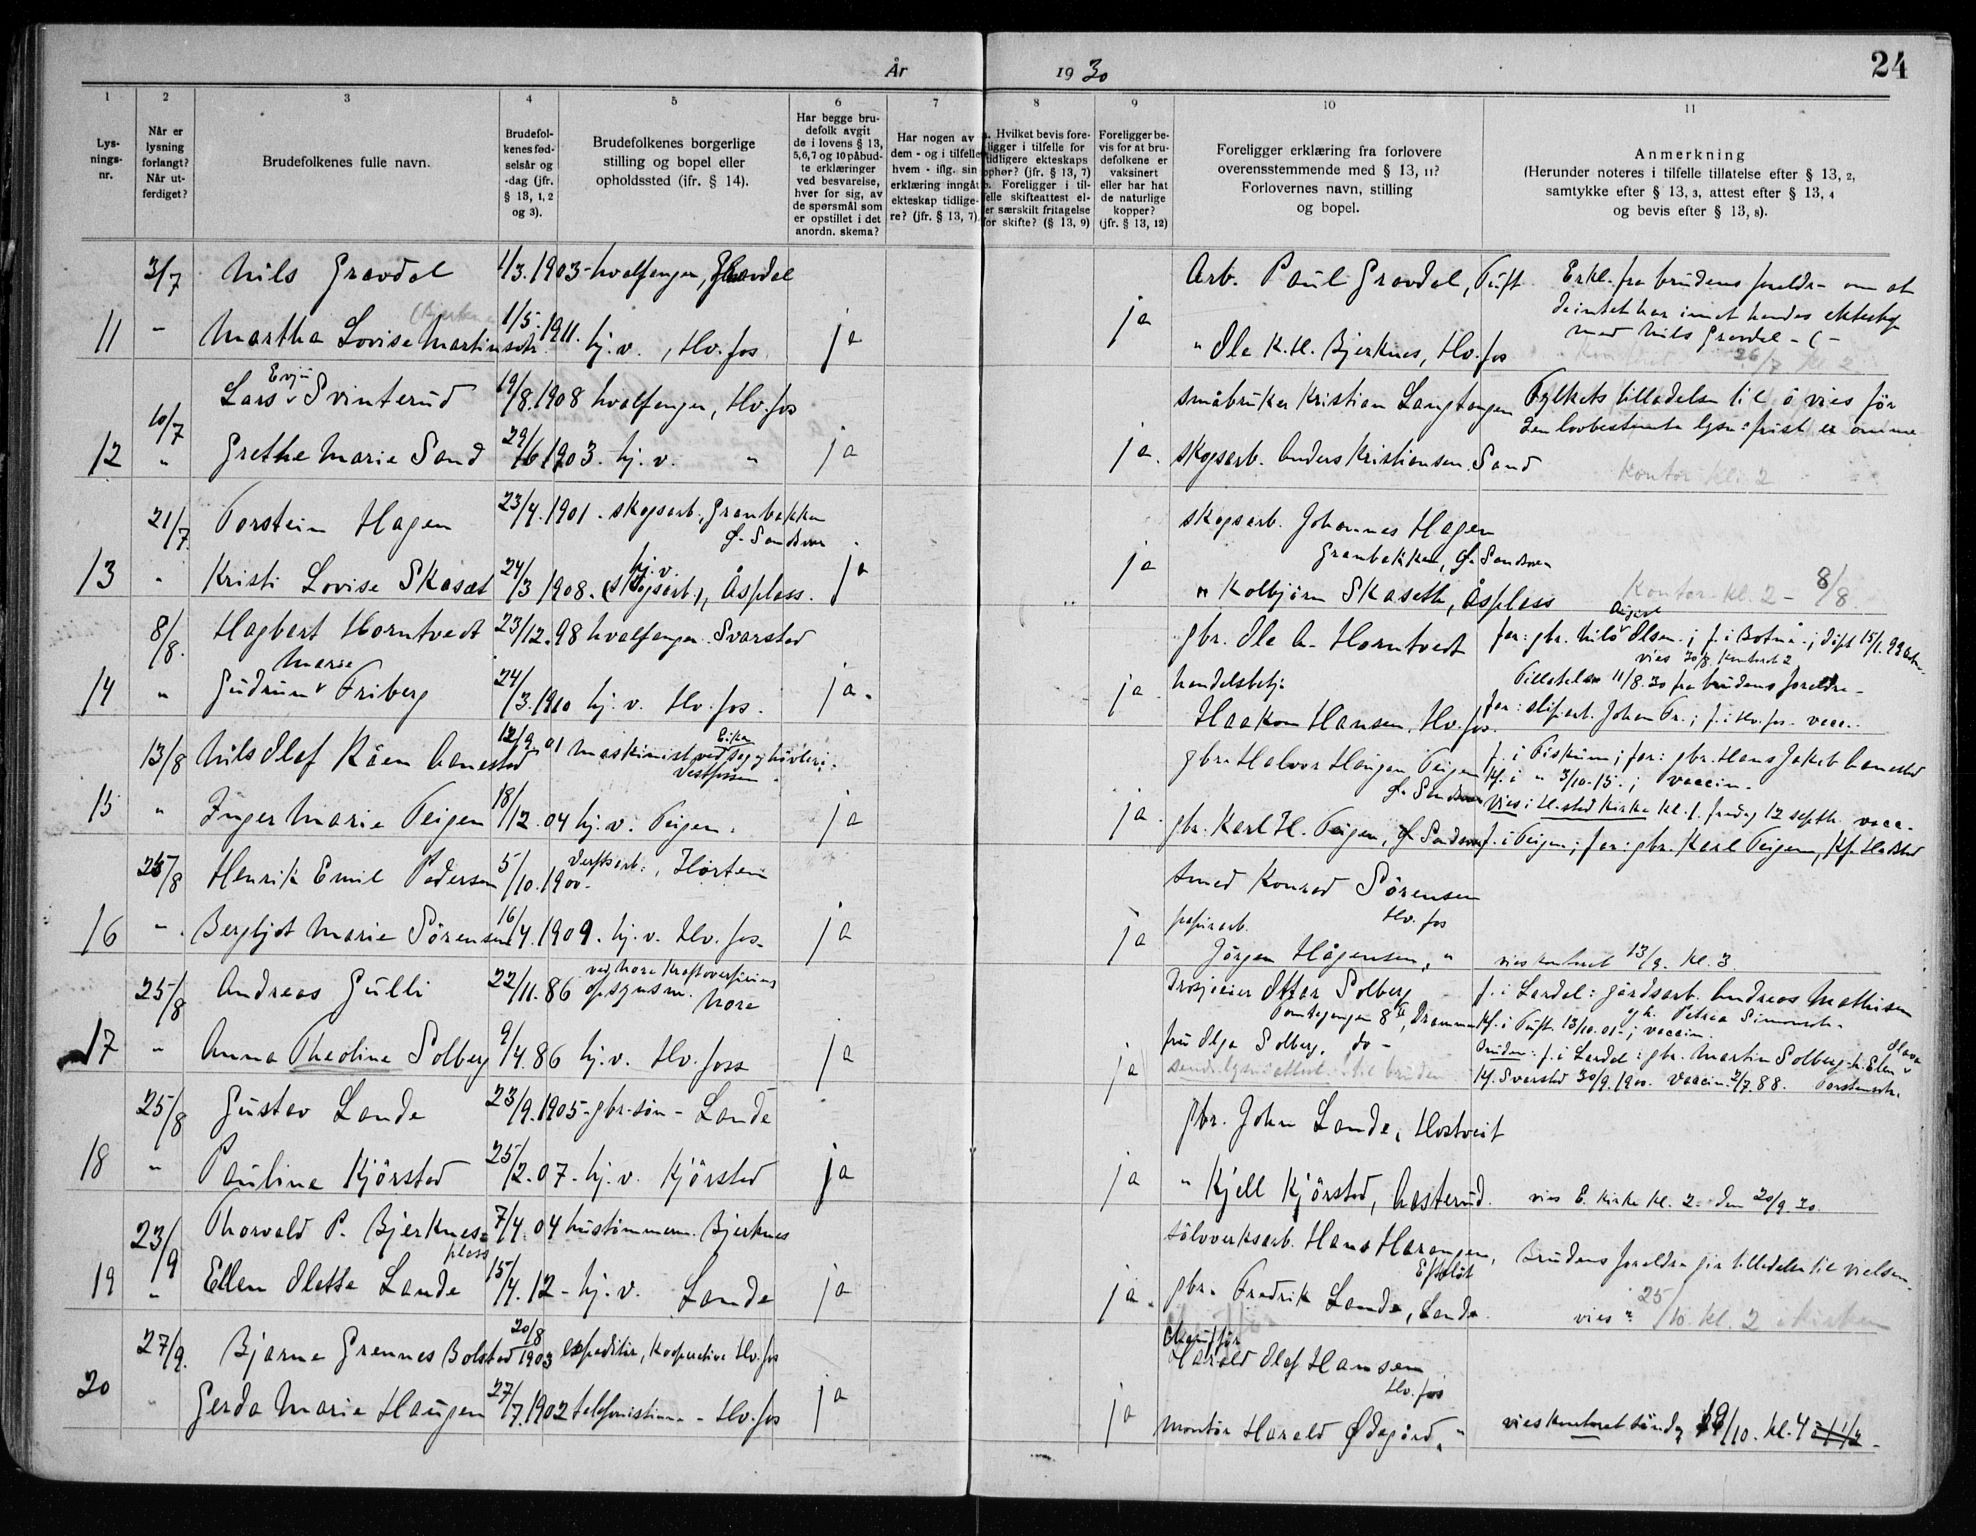 År 1930
24
1
2
3
4
5
6
7
8
9
10
11
Lys-
nings-
nr.
Når er
lysning
forlangt?
Når ut-
ferdiget?
Brudefolkenes fulle navn.
Brudefol-
kenes fød-
selsår og
-dag (jfr.
§ 13, 1, 2
og 3).
Brudefolkenes borgerlige
stilling og bopel eller
opholdssted (jfr. § 14).
Har begge bru-
defolk avgit
de i lovens § 13,
5, 6, 7 og 10 påbud-
te erklæringer
ved besvarelse,
hver for sig, av
de spørsmål som
er opstillet i det
anordn. skema?
Har nogen av
dem - og i tilfelle
hvem - iflg. sin
erklæring inngått
ekteskap tidlige-
re? (jfr. § 13, 7).
a. Hvilket bevis fore-
ligger i tilfelle for
tidligere ekteskaps
ophør? (jfr. § 13, 7)
b. Foreligger i til-
felle skifteattest el-
ler særskilt fritagelse
for skifte? (§ 13, 9)
Foreligger be-
vis for at bru-
defolkene er
vaksinert
eller har hat
de naturlige
kopper?
(jfr. § 13, 12)
Foreligger erklæring fra forlovere
overensstemmende med § 13, 11?
Forlovernes navn, stilling
og bopel.
Anmerkning
(Herunder noteres i tilfelle tillatelse efter § 13, 2,
samtykke efter § 13, 3, attest efter § 13, 4
og bevis efter § 13, 8).
3/7 Nils Gravdal 1/3.1903 - hvalfanger, Gravdal Arb. Paul Gravdal, Tuft Erkl. fra brudens foreldre om at
de intet har imot hendes ekteskap
med Nils Gravdal
11 " Martha Lovise Martinsdtr. 1/5.1911. hj.v., Hv.fos ja ja " Ole K.H. Bjerknes, Hv.fos 26/7 kl 2
10/7 Lars Evju Svinterud 19/8.1908 hvalfanger, Hv.fos småbruker Kristian Langtangen Fylkets tilladelse til å vies før
den lovbestemte lysn.frist er omme
12 " Grethe Marie Sand 29/6 1903. hj.v. " ja ja. skogsarb. Anders Kristiansen Sand Kontor kl. 2
21/7 Torstein Hagen 23/4.1901. skogsarb. Granbakken
Ø. Sandsvær
skogsarb. Johannes Hagen
Granbakken, Ø. Sandsvær
13 " Kristi Lovise Skasæt 24/3 1908. hj.v. (skogsarb.), Åsplass. ja ja " Kolbjørn Skaseth, Åsplass Kontor kl. 2 - 8/8
8/8. Hagbart Horntvedt 23/12.98 hvalfanger Svarstad gbr. Ole A. Horntvedt far: gbr. Nils August Olsen; f. i Botne; døpt 15/1.99
vies 30/8 Kontoret 2
14 " Gudrun Marie Friberg 24/3.1910 hj.v. Hv.fos. ja. ja. handelsbetj.
Haakon Hansen, Hv.fos.
Tillatelse 11/8.30 fra brudens foreldre
far: Johan Fr.; f. i Hv.fos. vacc.
13/8 Nils Olaf Råen Aanestad 12/9 01 maskinist ved Eiker sag og høvleri.
Vestfossen
gbr. Halvor Haugen Teigen
Ø. Sandsvær
f. i Fiskum; far: gbr. Hans Jakob Aanestad
kf. i " 3/10.15.; vaccin.
vies i H.stad Kirke kl. 1 fredag 12 septbr. vacc.
15 " Inger Marie Teigen 18/12.04 hj.v. Teigen. ja ja. gbr. Karl H. Teigen, Ø. Sandsvær f. i Teigen; far: gbr. Karl Teigen, kf. Hedstad
25/8 Henrik Emil Pedersen 5/10.1900. Verftsarb., Horten Smed Konrad Sörensen
Hv. fos
16 " Bergljot Marie Sörensen 16/4.1909. hj.v. Hv.fos. ja ja papirarb.
Jørgen Hågensen, " vies kontoret 13/9. kl. 3
25/8 Andreas Gulli 22/11.86 ved Nore Kraftoverføring
opsynsm. Nore
Drosjeeier Ottar Solberg
Tomtegangen 8, Drammen
f. i Lardal: gårdsarb. Andreas Mathisen
og h. Petrea Simonsdtr.
kf. i Tuft. 13/10.01.; vaccin.
17 " Anna Theoline Solberg 9/4.86 hj.v. Hv.foss ja ja fru Olga Solberg, do -
send lysn.attest til bruden
Bruden: f. i Lardal: gbr. Martin Solberg h. Elen Olava
Torstensdtr.
kf. Svarstad 30/9.1900. Vaccin. 2/7.88.
25/8 Gustav Lande 23/9.1905 - gbr.søn - Lande gbr. John Lande, Hostveit
18 " Pauline Kjørstad 25/2.07. hj.v. Kjørstad ja ja " Kjell Kjørstad, Aasterud. vies E. Kirke kl. 2. den 20/9.30.
23/9 Thorvald P. Bjerknes-
plass
7/4.04 hustømmerm. Bjerknes sølvverksarb. Hans Harangen,
Efteløt
Brudens foreldre gir tilladelse til vielsen
19 " Ellen Olette Lande 15/4.12 - hj.v. Lande ja ja. gbr. Fredrik Lande, Lande vies 25/10. kl. 2 i kirken
27/9. Bjarne Grennes Bolstad 20/8 1903 expeditør, Kooperative Hv.fos Chauffør
Harald Olaf Hansen
Hv.fos
20 " Gerda Marie Haugen 27/7.1902 telefonistinne - Hv.fos ja ja montør Harald Ødegård, " vies kontoret søndag 19/10. kl. 4